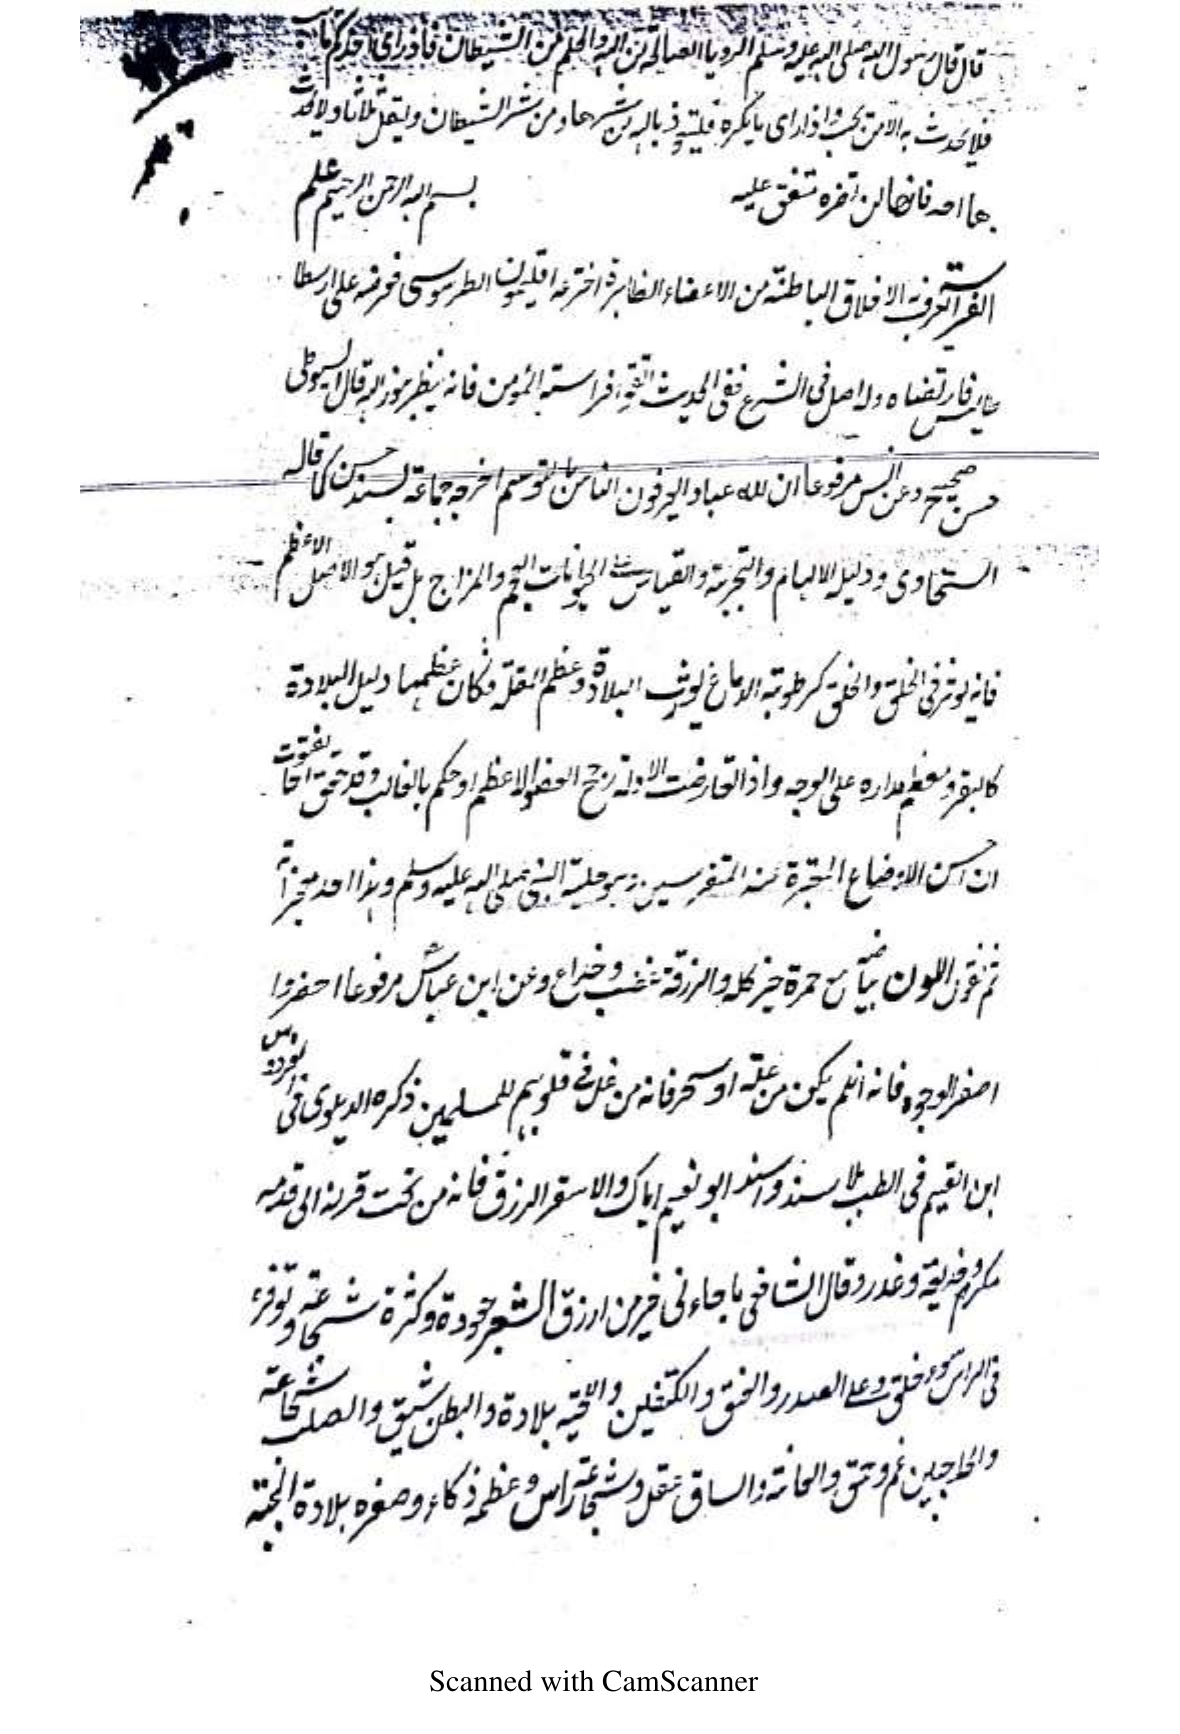 قال قال رسول الله صلى الله عليه وسلم الرويا الصالحة من الله والحلم من الشيطان فاذا راى احدكم ما يحب
فلا يحدث به الا من يحب واذا راى ما يكره فليتعوذ بالله من شرها ومن شر الشيطان وليتفل ثلاثا ولا يحدث
بها احد فانها لن تضره متفق عليه بسم الله الرحمن الرحيم علم
الفراسة تعرف به الاخلاق الباطنة من الاعضاء الظاهرة اخترعه اقليمون الطرسوسى فعرضه على ارسطا
طاليس فارتضاه وله اصل فى الشرع ففى الحديث اتقوا فراسة المؤمن فانه ينظر بنور الله قال السيوطى
حسن صحيح وعن انس مرفوعا ان لله عبادا يعرفون الناس بالتوسم اخرجه جماعة بسند حسن كما قاله
السخاوى ودليله الالهام والتجربة والقياس على الحيوانات العجم والمزاج بل قيل هو الاصل الاعظم
فانه يوثر فى الخلق والخلق كرطوبة الدماغ يورث البلادة وعظم المقلة فكان عظمها دليل البلادة
كالبقر ومعظم مداره على الوجه واذا تعارضت الادلة رجح العضو الاعظم او حكم بالغالب وقد تحقق
ان احسن الاوضاع المعتبرة عند المتفرسين هو حلية النبى صلى الله عليه وسلم وهذا احد معجزاته
ثم نقول اللون بياض مع حمرة خير كله والزرقة غضب وخداع وعن ابن عباس مرفوعا احذروا
اصفر الوجوه فانه ان لم يكن من علة او سهر فانه من غل فى قلوبهم للمسلمين ذكره الديلمى فى الفردوس
ابن القيم فى الطب بلا سند واسند ابو نعيم اياك والاشقر الازرق فانه من تحت قرنه الى قدمه
مكر وخديعة وغدر وقال الشافعى ما جاءنى خير من ازرق الشعر جعودة وكثرة شجاعة وتوفره
فى الراس سوء خلق وعلى الصدر والعنق والكتفين واللحية بلادة والبطن شبق والصلب شجاعة
والحاجبين غم وحمق والعانة والساق عقل وشجاعة راس وعظمه ذكاء وصغره بلادة الجبهة
Scanned with CamScanner